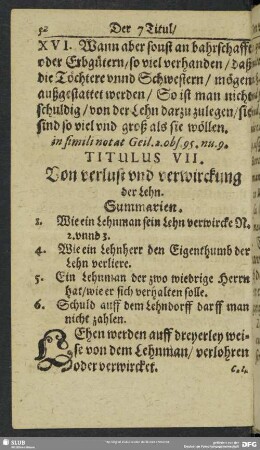 52 Der 7 Titul/
XVI. Wann aber sonst an bahrschafft
oder Erbgütern/ so viel verhanden/ daß
die Töchtere vnnd Schwestern/ mögen
außgestattet werden/ So ist man nicht
schuldig/ von der Lehn darzu zulegen/ sie
sind so viel vnd groß als sie wöllen.
in simili notat Geil. 2. obs. 95. nu. 9.
TITULUS VII.
Von verlust vnd verwirckung
der Lehn.
Summarien.
1. Wie ein Lehnman sein Lehn verwircke N.
2. vnnd 3.
4. Wie ein Lehnherr den Eigenthumb der
Lehn verliere.
5. Ein Lehnman der zwo wiedrige Herrn
hat/ wie er sich verhalten solle.
6. Schuld auff dem Lehndorff darff man
nicht zahlen.
LEhen werden auff dreyerley wei-
se von dem Lehnman/ verlohren
oder verwircket.
SLUB
DFG